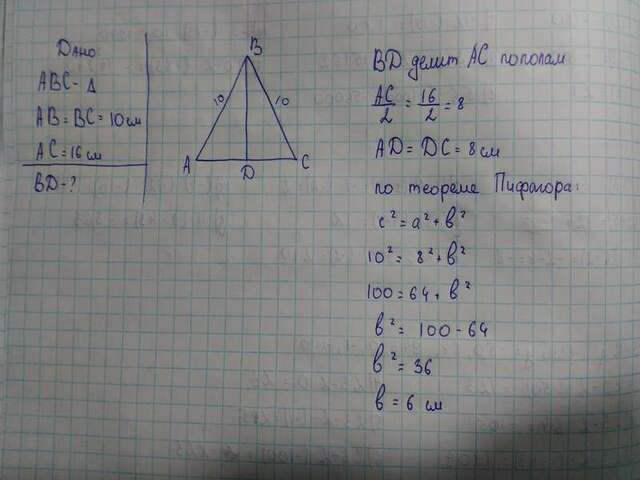 Дано
ABC - Δ
AB = BC = 10 см
AC = 16 см
BD - ?
B
10
10
A
D
C
BD делит AC пополам
AC/2 = 16/2 = 8
AD = DC = 8 см
по теореме Пифагора:
c² = a² + b²
10² = 8² + b²
100 = 64 + b²
b² = 100 - 64
b² = 36
b = 6 см